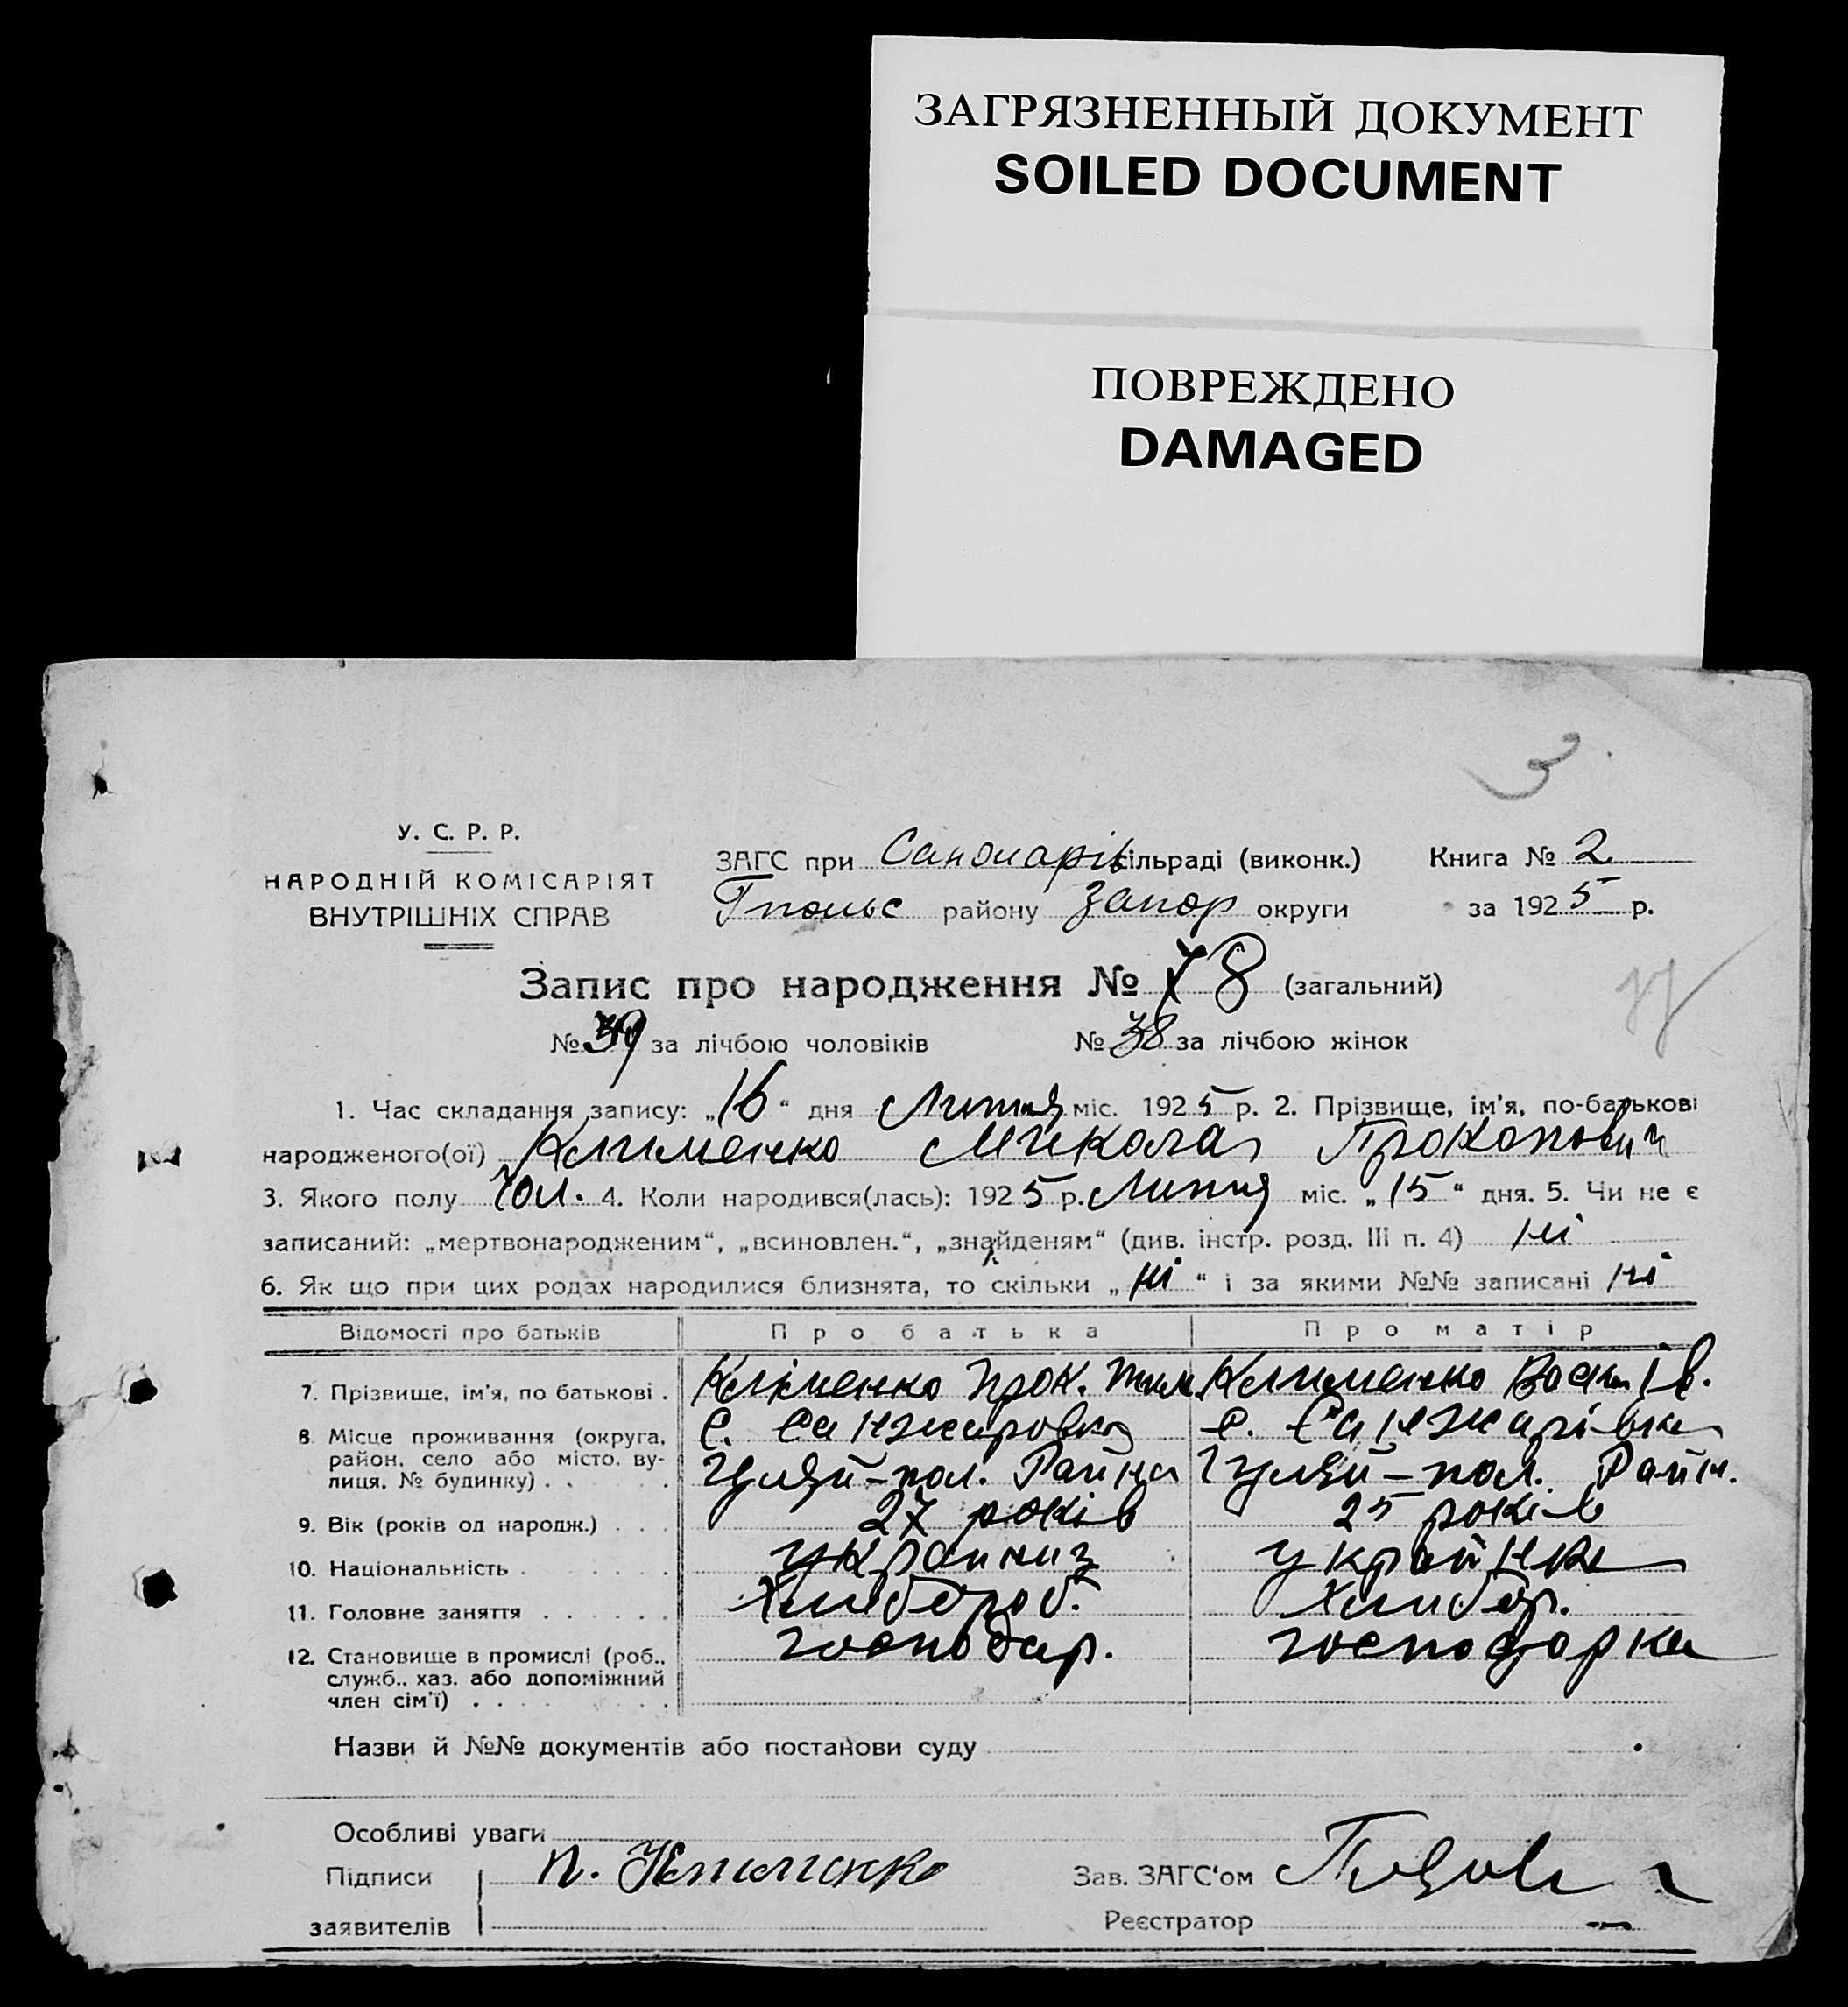 ЗАГРЯЗНЕННЫЙ ДОКУМЕНТ
SOILED DOCUMENT
ПОВРЕЖДЕНО
DAMAGED
3
У. С. Р. Р.
НАРОДНІЙ КОМІСАРІЯТ
ВНУТРІШНІХ СПРАВ
ЗАГС при сільраді (виконк.) Книга № 2
району Запор округи за 1925 р.
Запис про народження № 78 (загальний)
№ 39 за лічбою чоловіків № 38 за лічбою жінок
1. Час складання запису: „16“ дня Липня міс. 1925 р. 2. Прізвище, ім'я, по-батькові
народженого(ої) Клименко Микола Прокопович
3. Якого полу Чол. 4. Коли народився(лась): 1925 р. Липня міс. „15“ дня. 5. Чи не є
записаний: „мертвонародженим“, „всиновлен.“, „знайденям“ (див. інстр. розд. III п. 4) ні
6. Як що при цих родах народилися близнята, то скільки „ні“ і за якими №№ записані ні
Відомості про батьків Про батька Про матір
7. Прізвище, ім'я, по батькові . Кліменко Прок. Тим. Клименко
8. Місце проживання (округа, район, село або місто, вулиця, № будинку) . . . С. Санжаровка Гуляй-пол. Района С. Санжарівка Гуляй-пол. Район.
9. Вік (років од народж.) . . . 27 років 25 років
10. Національність . . . . . україниц українка
11. Головне заняття . . . . . . Хлибороб. Хлибор.
12. Становище в промислі (роб., служб., хаз. або допоміжний член сім'ї) . . . . . . господар. господарка
Назви й №№ документів або постанови суду
Особливі уваги
Підписи п. Клименко Зав. ЗАГС'ом
заявителів Реєстратор